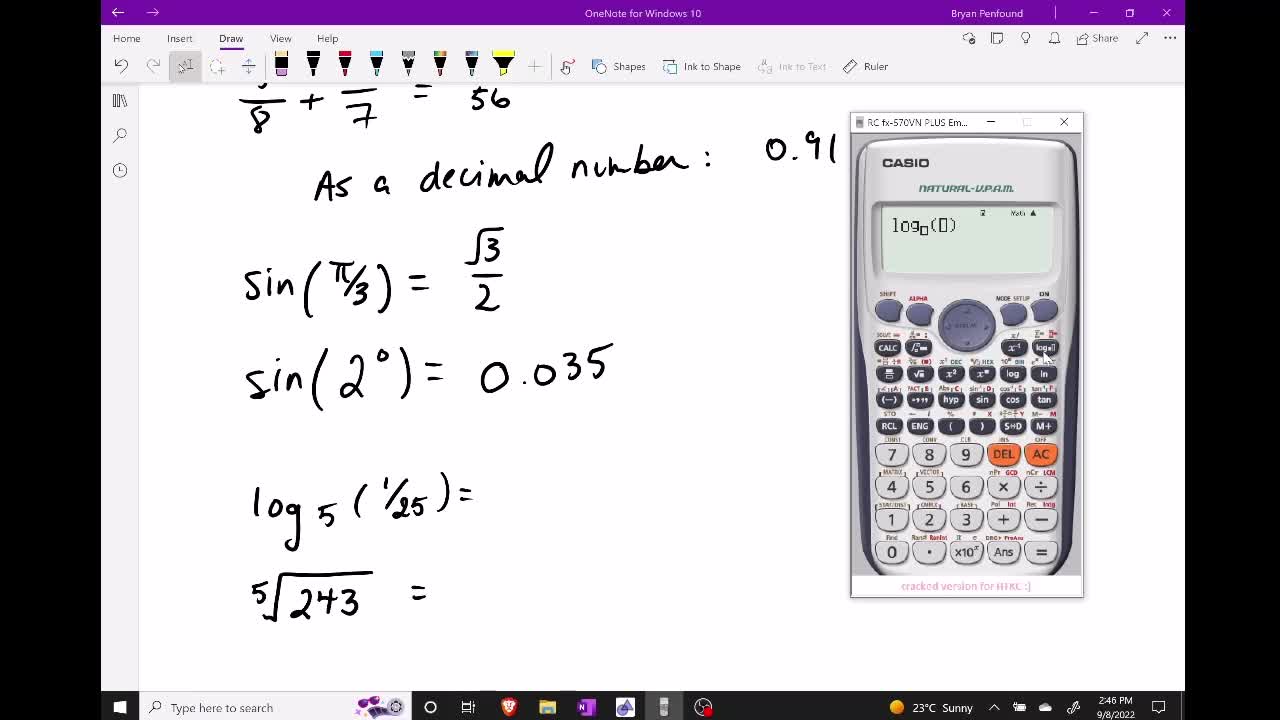 OneNote for Windows 10
Bryan Penfound
Home Insert Draw View Help
Share
Shapes Ink to Shape Ink to Text Ruler
8 + 7 = 56
As a decimal number: 0.91
sin(π/3) = √3/2
sin(2°) = 0.035
log₅(1/25) =
⁵√243 =
RC fx-570VN PLUS Em...
CASIO
NATURAL-V.P.A.M.
Math ▲
log▯(▯)
SHIFT ALPHA MODE SETUP ON
REPLAY
CALC x⁻¹ log
√ x² log ln
(−) hyp sin cos tan
RCL ENG ( ) S⇔D M+
7 8 9 DEL AC
4 5 6 × ÷
1 2 3 + −
0 . ×10ˣ Ans =
cracked version for HTKC :]
Type here to search
23°C Sunny
2:46 PM
9/8/2022